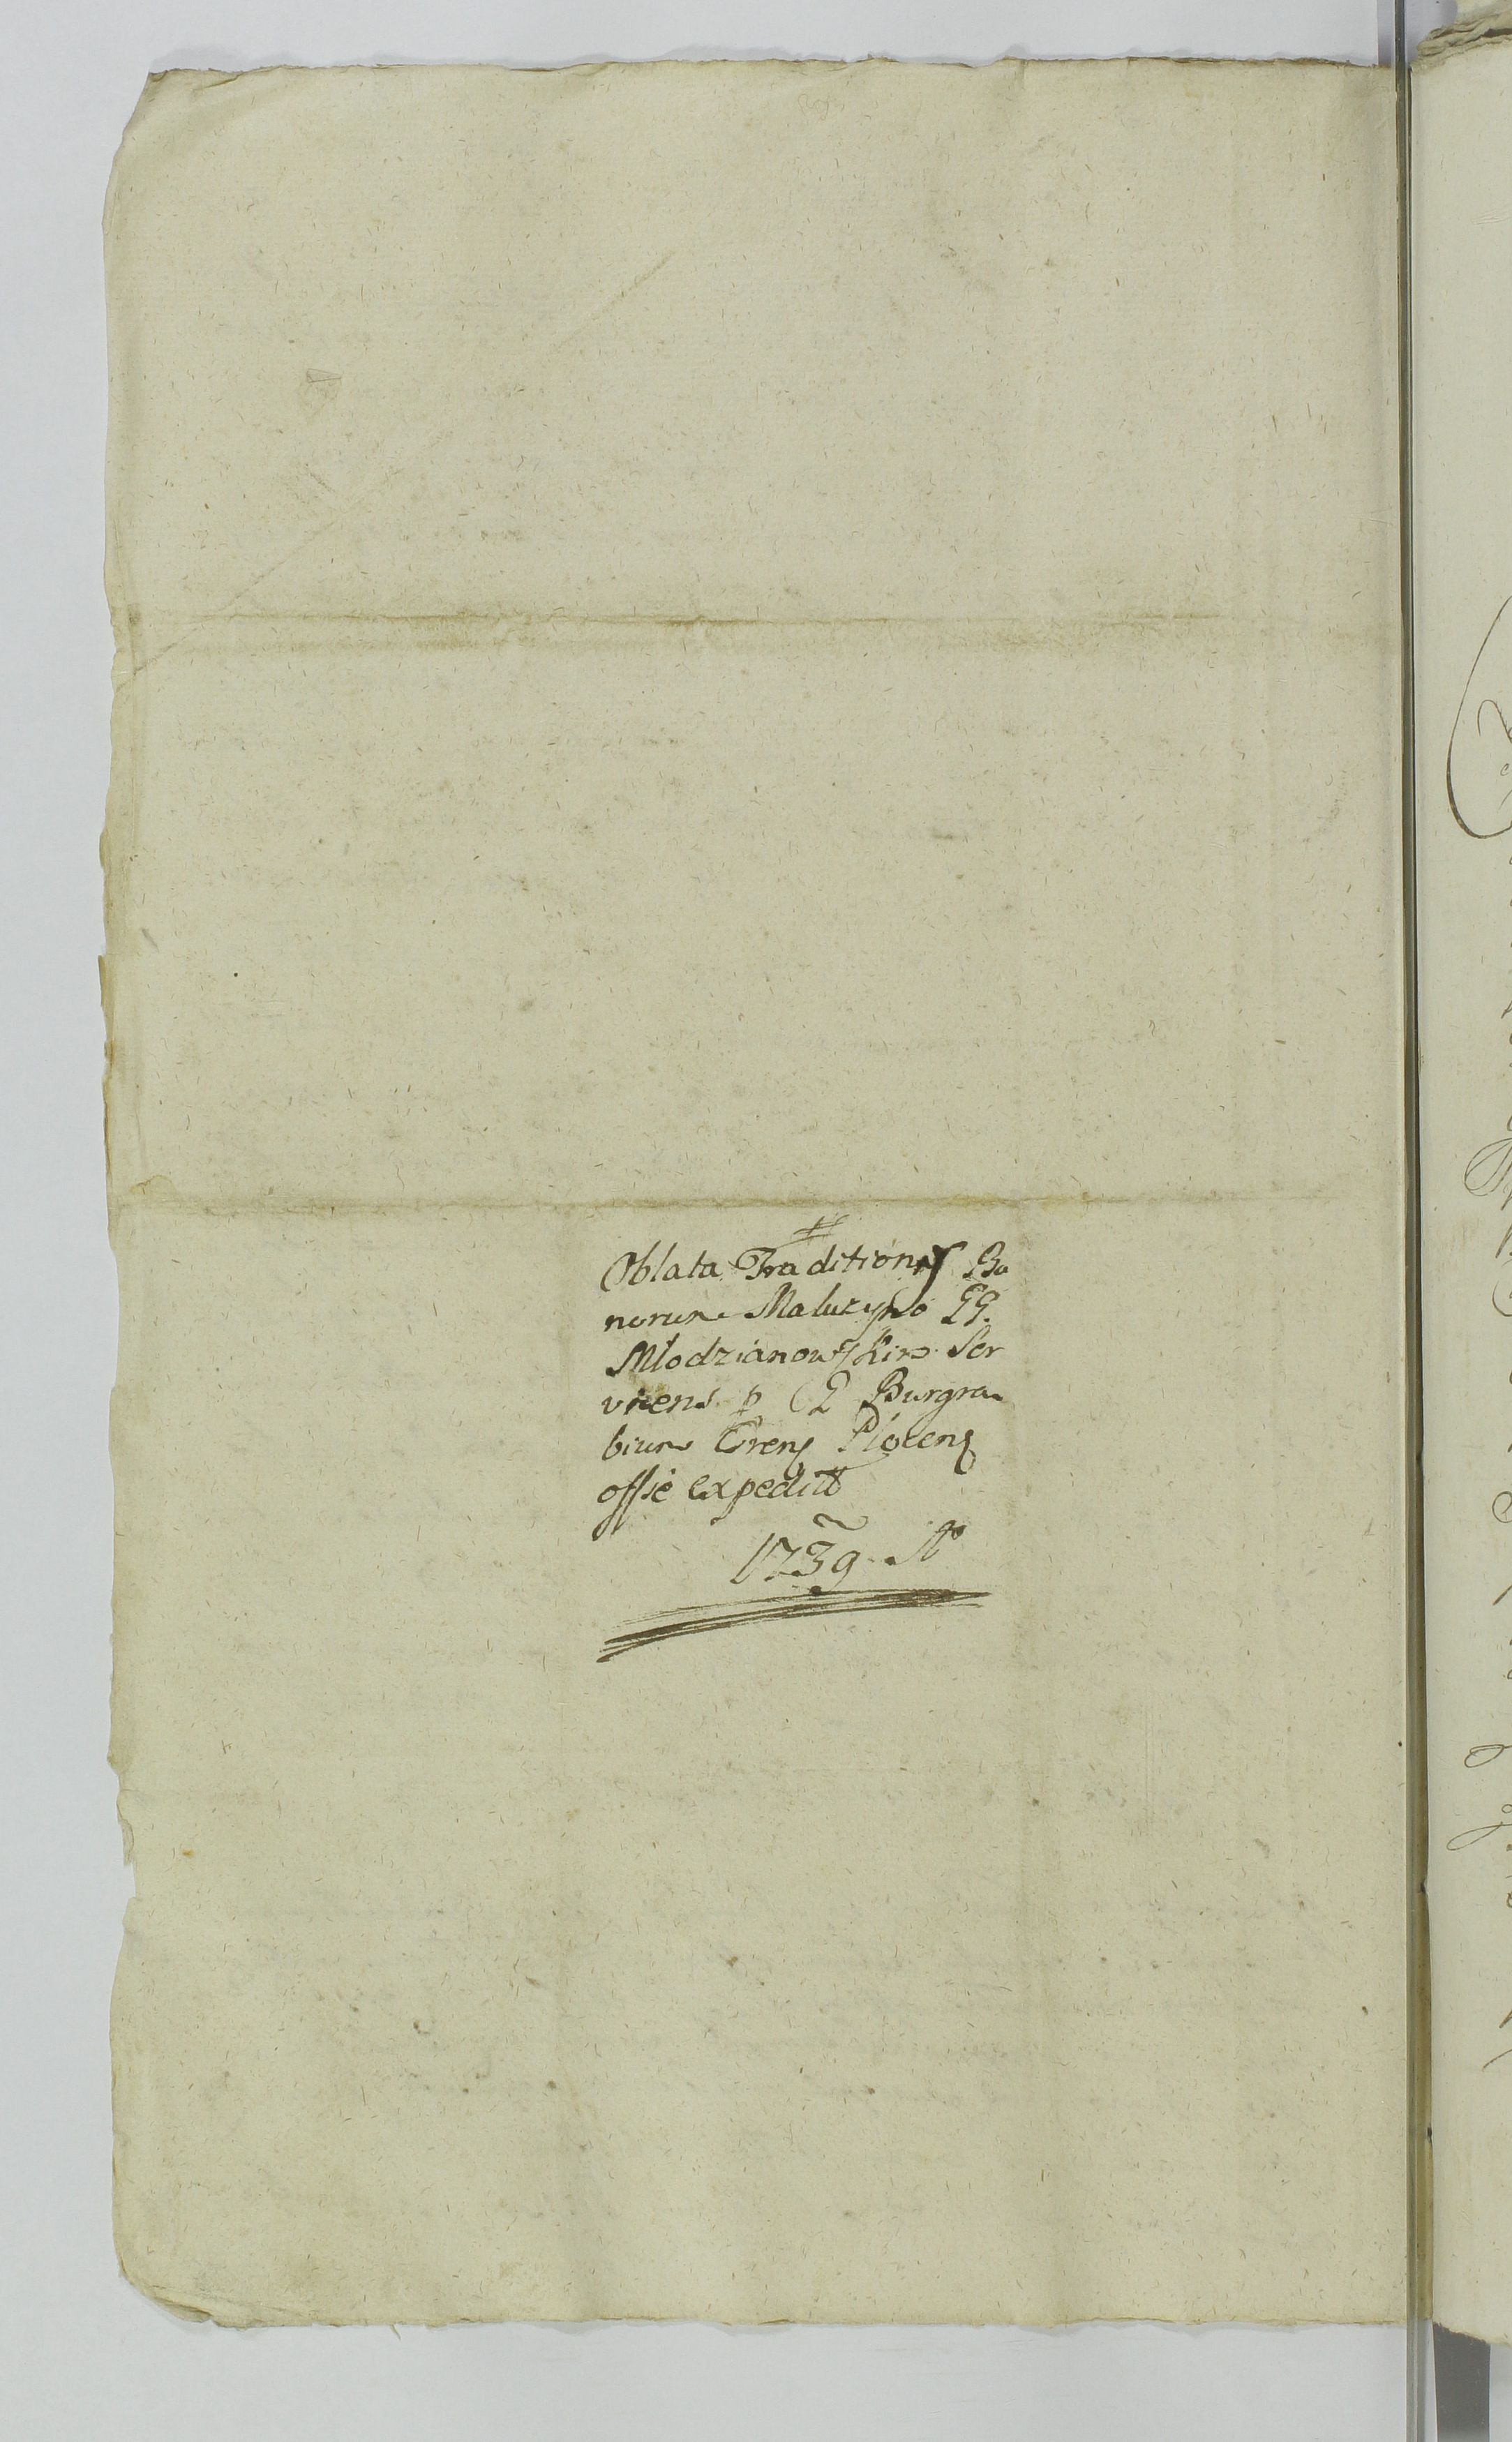 Oblata Traditionis Bo
norum Maluzyno GG.
Młodzianowskim Ser
viens p G Burgra
bium Cren Plocen
offie expedit
1739 Ao